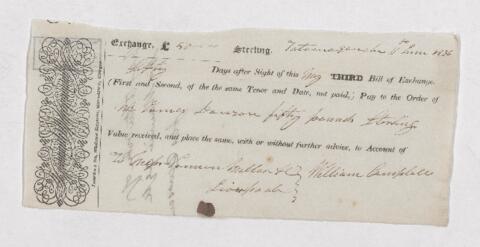 Exchange, £ 50 Sterling. Tatamagouche 6th June 1836
Sixty Days after Sight of this My THIRD Bill of Exchange.
(First and Second, of the the same Tenor and Date, not paid,) Pay to the Order of
Mr James Dawson fifty pounds Sterling
Value received, and place the same, with or without further advise, to Account of
To Messrs Millar & Co William Campbell
Liverpool